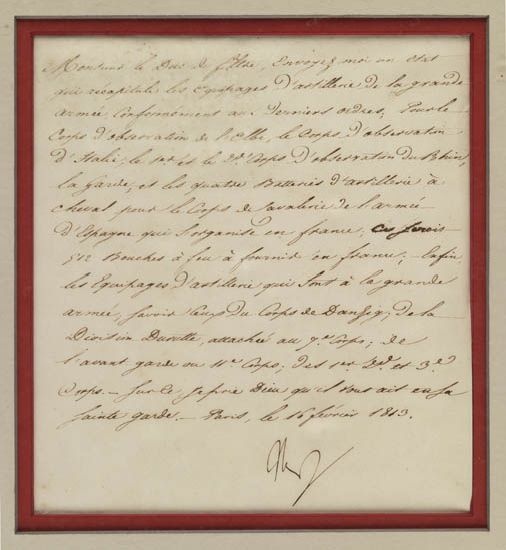 Monsieur le Duc de feltre, Envoyez moi un état
qui récapitule les équipages d'artillerie de la grande
armée, Conformément aux derniers ordres; Pour le
Corps d'observation de l'Elbe, le Corps d'observation
d'Italie, le 1er et le 2e Corps d'observation du Rhin,
la garde, et les quatre Batteries d'artillerie à
cheval pour le Corps de Cavalerie de l'armée
d'Espagne qui s'organise en france,
512 Bouches à feu à fournir en france; Enfin
les Equipages d'artillerie qui sont à la grande
armée, savoir Ceux du Corps de Danzig; de la
Division Durutte, attachée au 7e Corps; de
l'avant garde ou 11e Corps; des 1er 2d. et 3e
Corps. — Sur ce je prie Dieu qu'il vous ait en sa
sainte garde. — Paris, le 16 février 1813.